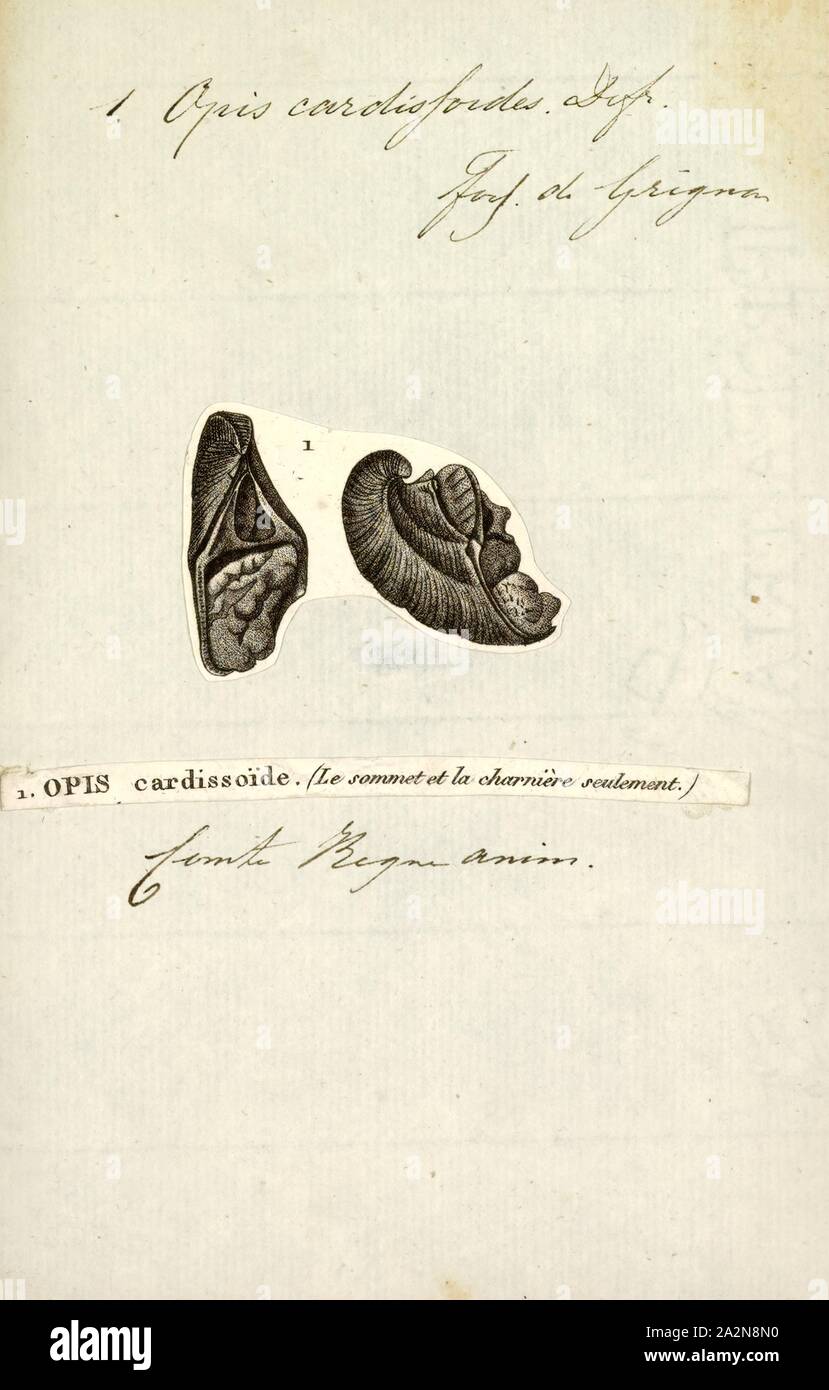 1. Opis cardissoides. Defr.
Foss. de Grignon
1
1. OPIS cardissoïde. (Le sommet et la charnière seulement.)
Comte Regne anim.
alamy
alamy
Image ID: 2A2N8N0
www.alamy.com